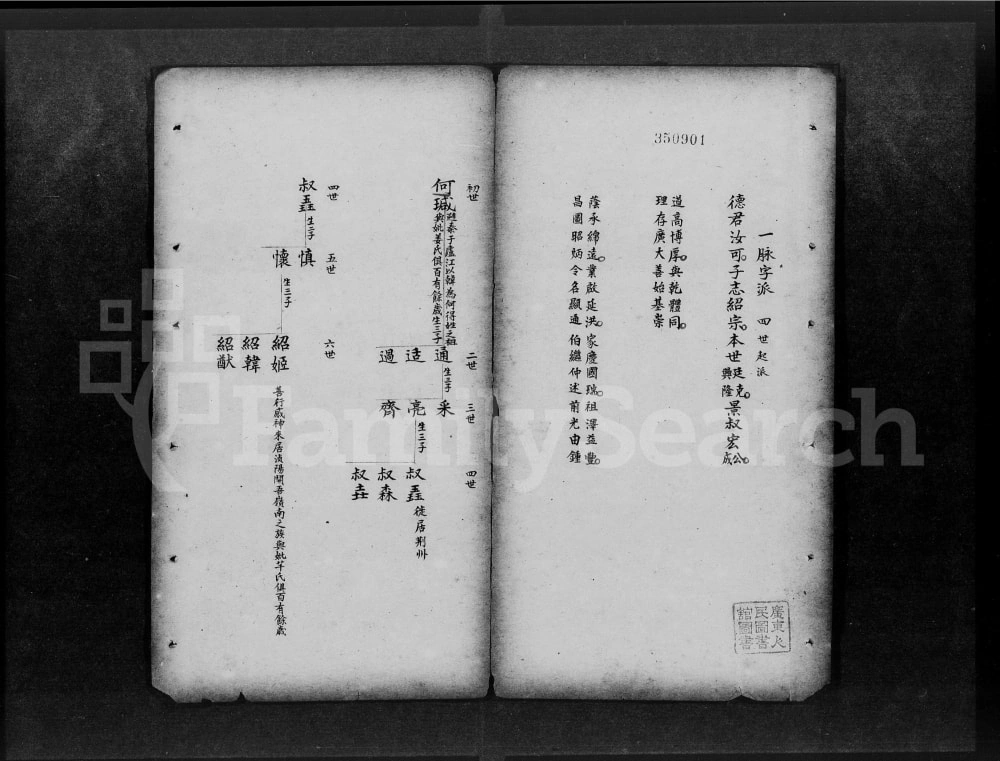 350901
一脉字派　四世起派
德君汝可。子志紹宗。本世廷克。景叔宏公。
興隆　成
道高博厚。與乾體同。
理存廣大善始基崇
蔭承綿遠。業啟延洪。家慶國瑞。祖澤益豐。
昌圖昭炳令名顯通伯繼仲述前光由鍾
廣東人
民圖書
舘圖書
初世
何瑊
避秦于廬江以韓為何得姓之祖
與妣姜氏俱百有餘歲生三子
二世
通
适
過
生三子
三世
采
亮
齊
生三子
四世
叔䨻徙居荆州
叔森
叔垚
四世
叔䨻
生二子
五世
慎
懷
生三子
六世
紹姬
善行感神來居湞陽開吾嶺南之族與妣芊氏俱百有餘歲
紹韓
紹猷
FamilySearch